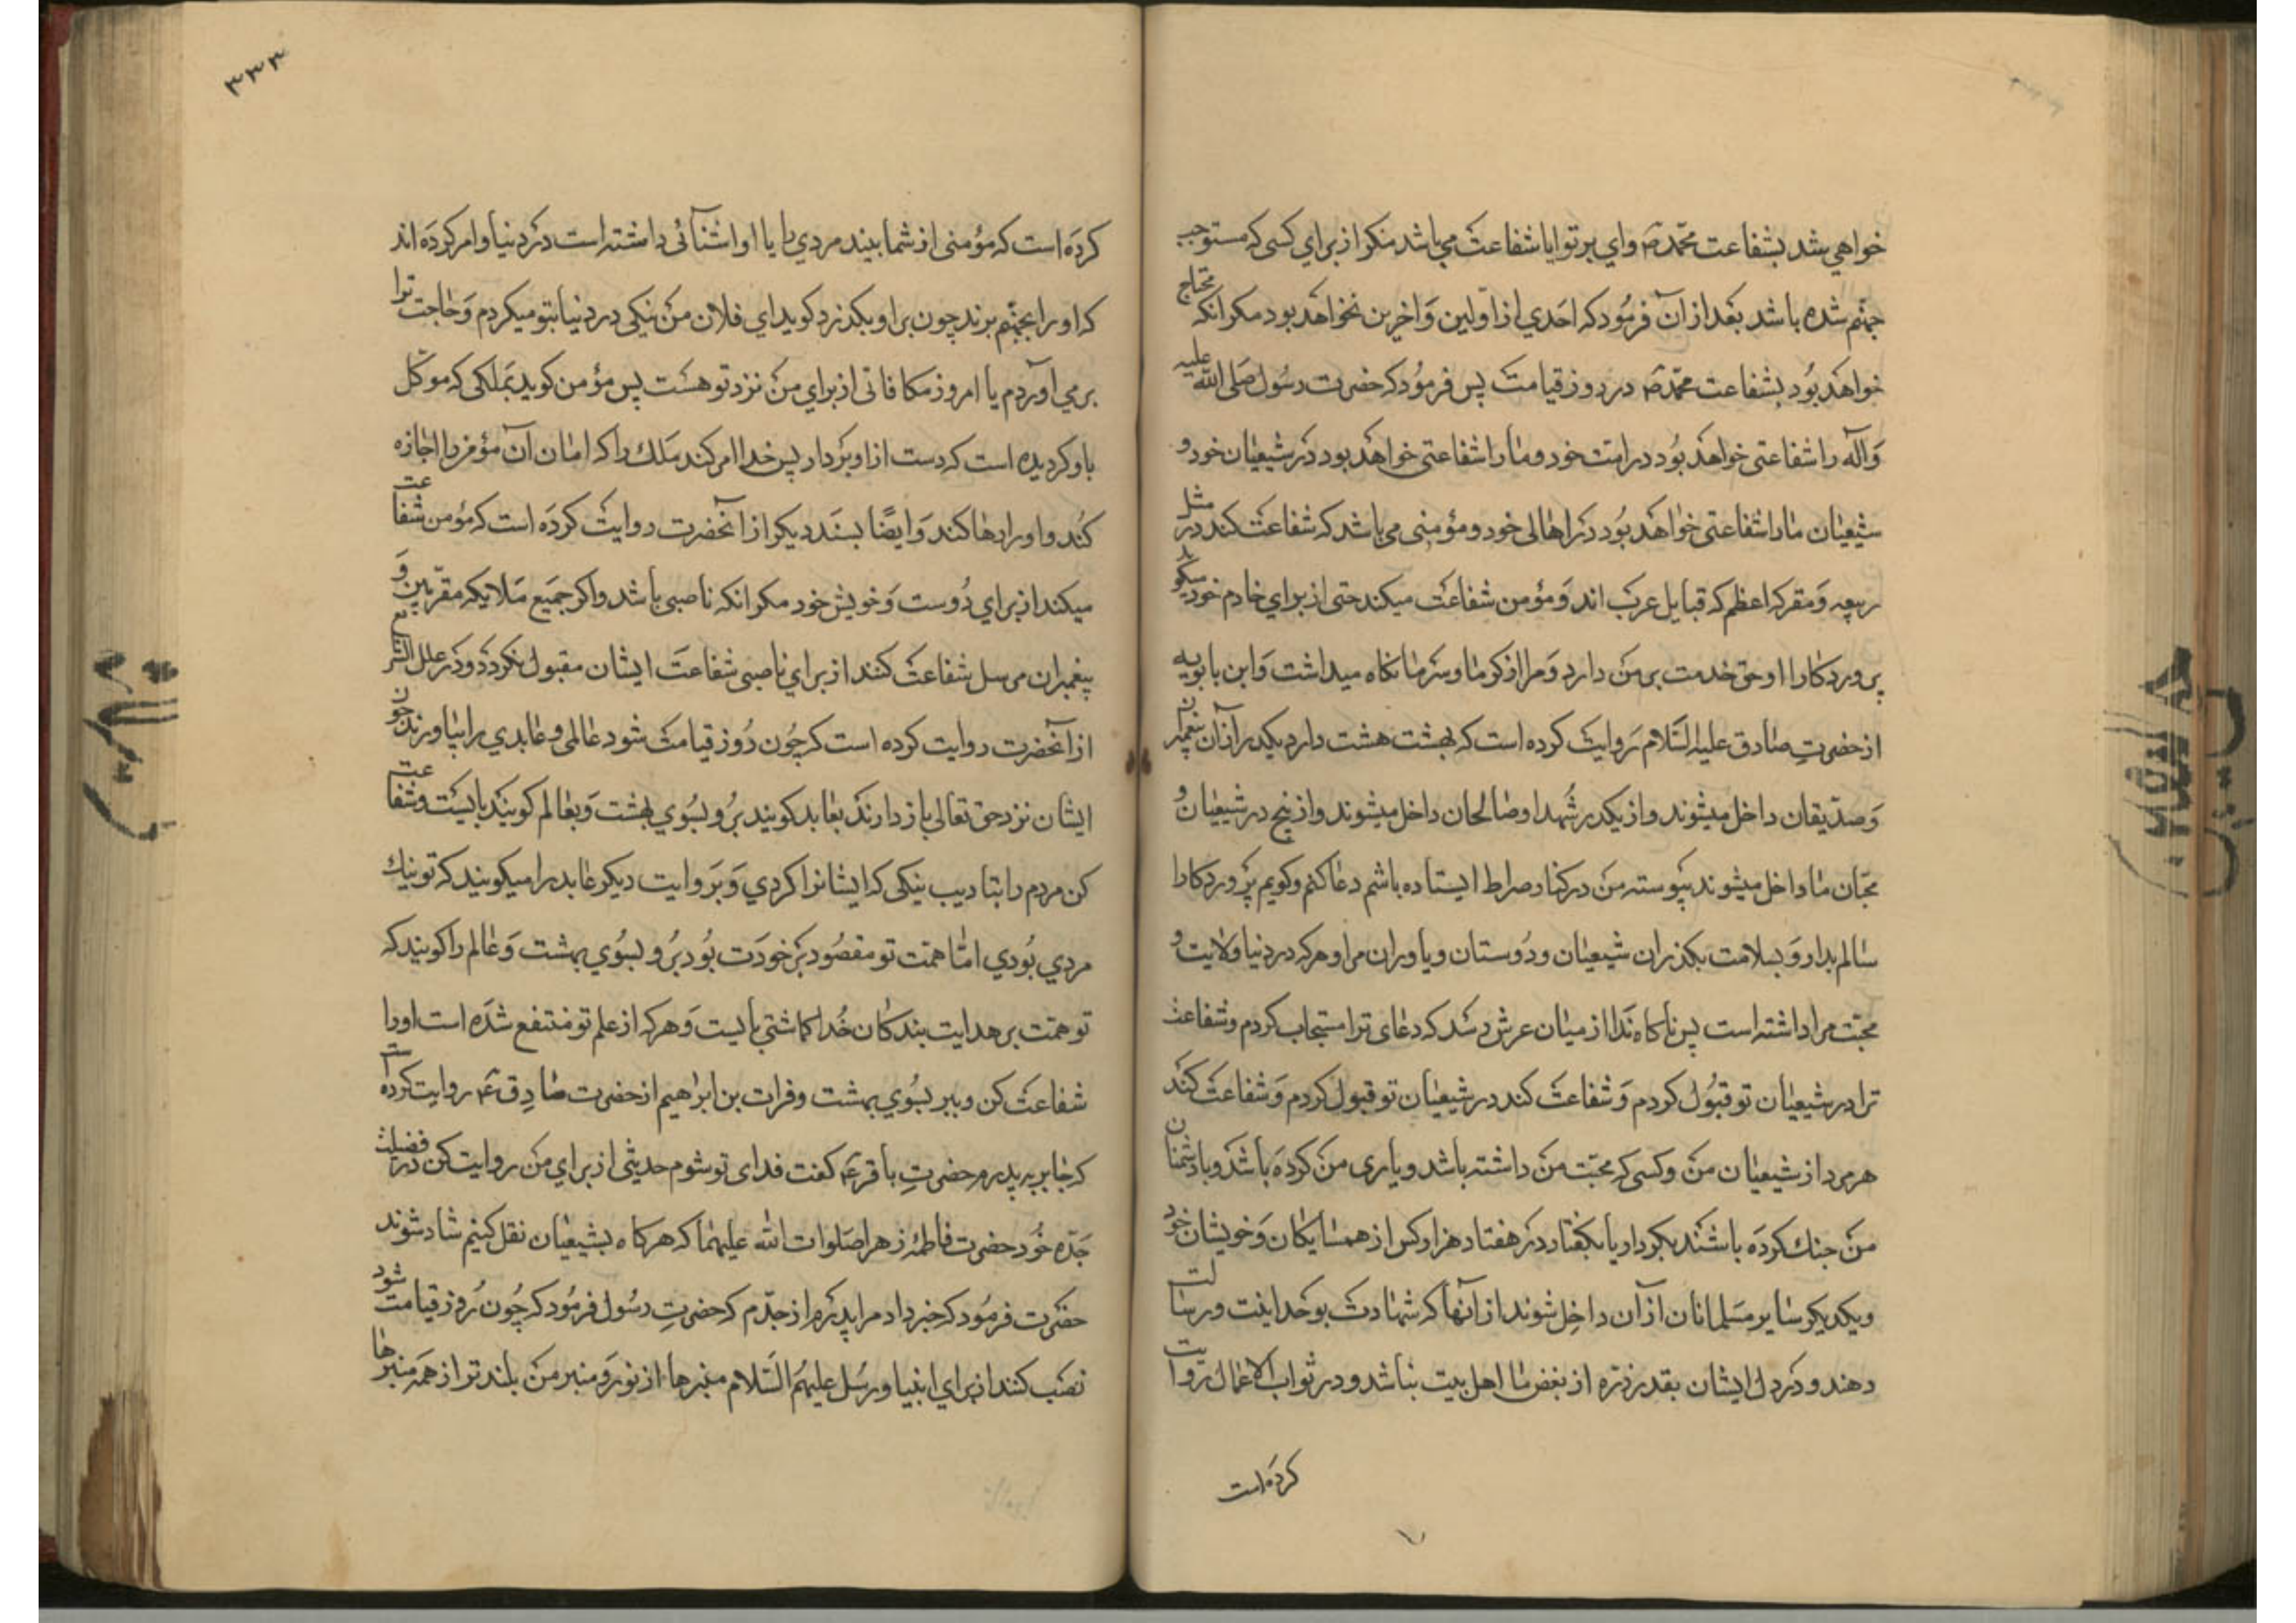 خواهي شد بشفاعت محمّد ص واي بر تو ايا شفاعت مي باشد مكر از براي كسي كه مستوجب
جهنّم شده باشد بعد از ان فرمود كه احدي از اوّلين و اخرين نخواهد بود مكر انكه محتاج
خواهد بود بشفاعت محمّد ص در روز قيامت پس فرمود كه حضرت رسول صلى الله عليه
و آله را شفاعتى خواهد بود در امت خود و ما را شفاعتى خواهد بود در شيعيان خود و
شيعيان ما را شفاعتى خواهد بود در اهالى خود و مؤمنى مى باشد كه شفاعت كند در مثل
ربيعه و مضر كه اعظم كه قبايل عرب اند و مؤمن شفاعت ميكند حتى از براي خادم خود ميكويد
پروردكارا او حق خدمت بر من دارد و مرا از كرما و سرما نكاه ميداشت و ابن بابويه
از حضرتِ صادق عليه السّلام روايت كرده است كه بهشت هشت در دارد يكدر از آن پيغمبران
و صدّيقان داخل ميشوند و از يكدر شُهدا و صالحان داخل ميشوند و از پنج در شيعيان و
محبّان ما داخل ميشوند پيوسته من در كنار صراط ايستاده باشم دعا كنم و كويم پروردكارا
سالم بدار و بسلامت بكذران شيعيان و دوستان و ياوران مرا و هر كه در دنيا ولايت و
محبّت مرا داشته است پس ناكاه ندا از ميان عرش رسد كه دعاى ترا مستجاب كردم و شفاعت
ترا در شيعيان تو قبول كردم و شفاعت كند در شيعيان تو قبول كردم و شفاعت كند
هر مرد از شيعيان من و كسى كه محبّت من داشته باشد و يارى من كرده باشد و با دشمنان
من جنك كرده باشند بكردار يا بكفتار در هفتاد هزار كس از همسايكان و خويشان خود
و يكدر يكر ساير مسلمانان از آن داخِل شوند از آنها كه شهادت بوحدانيت و رسالت
دهند و در دل ايشان بقدر ذرّه از بغض ما اهل بيت نباشد و در ثواب الاعمال روايت
كرده است
٣٣٣
كرده است كه مؤمنى از شما بيند مردي را يا او اشنائى داشته است در دنيا و امر كرده اند
كه او را بجهنّم برند چون بر او بكذرد كويد اي فلان من نيكى در دنيا بتو ميكردم و حاجت ترا
بر مي آوردم يا امروز مكافاتى از براي من نزد تو هست پس مؤمن كويد بملكى كه موكّل
باو كرديده است كه دست از او بردار پس خدا امر كند ملك را كه امان آن مؤمن را اجازه
كند و او را رها كند و ايضًا بسند ديكر از آنحضرت روايت كرده است كه مؤمن شفاعت
ميكند از براي دوست و خويش خود مكر انكه ناصبى باشد و اكر جميع ملايكه مقرّبين و
پيغمبران مرسل شفاعت كنند از براي ناصبى شفاعت ايشان مقبول نكردد و در علل الشرايع
از آنحضرت روايت كرده است كه چون روز قيامت شود عالمى و عابدي را بياورند چون
ايشان نزد حق تعالى باز دارند بعابد كويند برو بسوي بهشت و بعالم كويند بايست و شفاعت
كن مردم را بتاديب نيكى كه ايشانرا كردي و بروايت ديكر عابد را ميكويند كه تو نيك
مردي بودي امّا همّت تو مقصود بر خودت بود برو بسوي بهشت و عالم را كويند كه
تو همّت بر هدايت بندكان خدا كماشتي بايست و هر كه از علم تو منتفع شده است او را
شفاعت كن و ببر بسوي بهشت و فرات بن ابراهيم از حضرت صادِق ع روايت كرده است
كه جابر به پدرم حضرتِ باقر ع كفت فداى تو شوم حديثى از براي من روايت كن در فضيلت
جدّه خود حضرت فاطمه زهرا صلوات الله عليهما كه هركاه بشيعيان نقل كنيم شاد شوند
حضرت فرمود كه خبر داد مرا پدرم از جدّم كه حضرتِ رسول فرمود كه چون روز قيامت شود
نصب كنند از براي انبيا و رسل عليهم السّلام منبرها از نور و منبر من بلند تر از همه منبرها